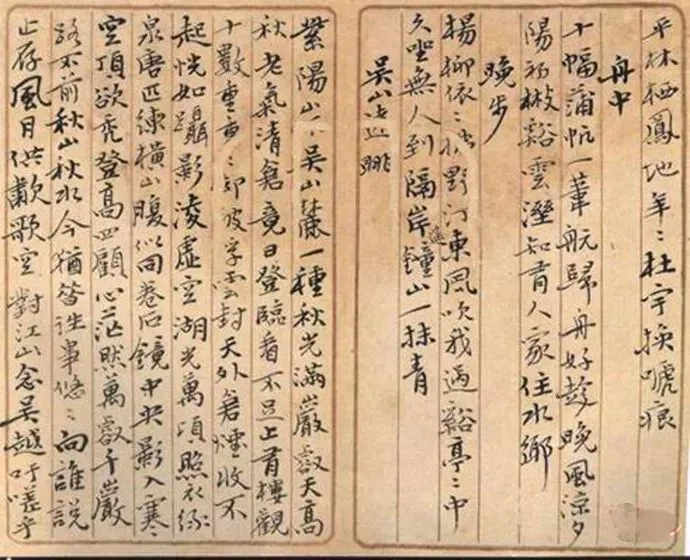 平林栖鳳地年〻杜宇換啼痕
舟中
十幅蒲帆一葦航歸舟好趁晚風涼夕
陽初散谿雲溼知有人家住水鄉
晚步
楊柳依〻拂野汀東風吹我過谿亭〻中
久坐無人到隔岸鐘山一抹青
吳山遠眺
紫陽山下吳山麓一種秋光滿巖壑天高
秋老氣清蒼竟日登臨看不足上有樓觀
十數重重〻卻被浮雲封天外蒼煙收不
起恍如躡影凌虛空湖光萬頃照衣綠
泉唐匹練橫山腹似向卷石鏡中央影入寒
空頂欲禿登高四顧心茫然萬壑千巖
路不前秋山秋水今猶昔往事悠〻向誰說
止存風月供歗歌空對江山念吳越吁嗟乎